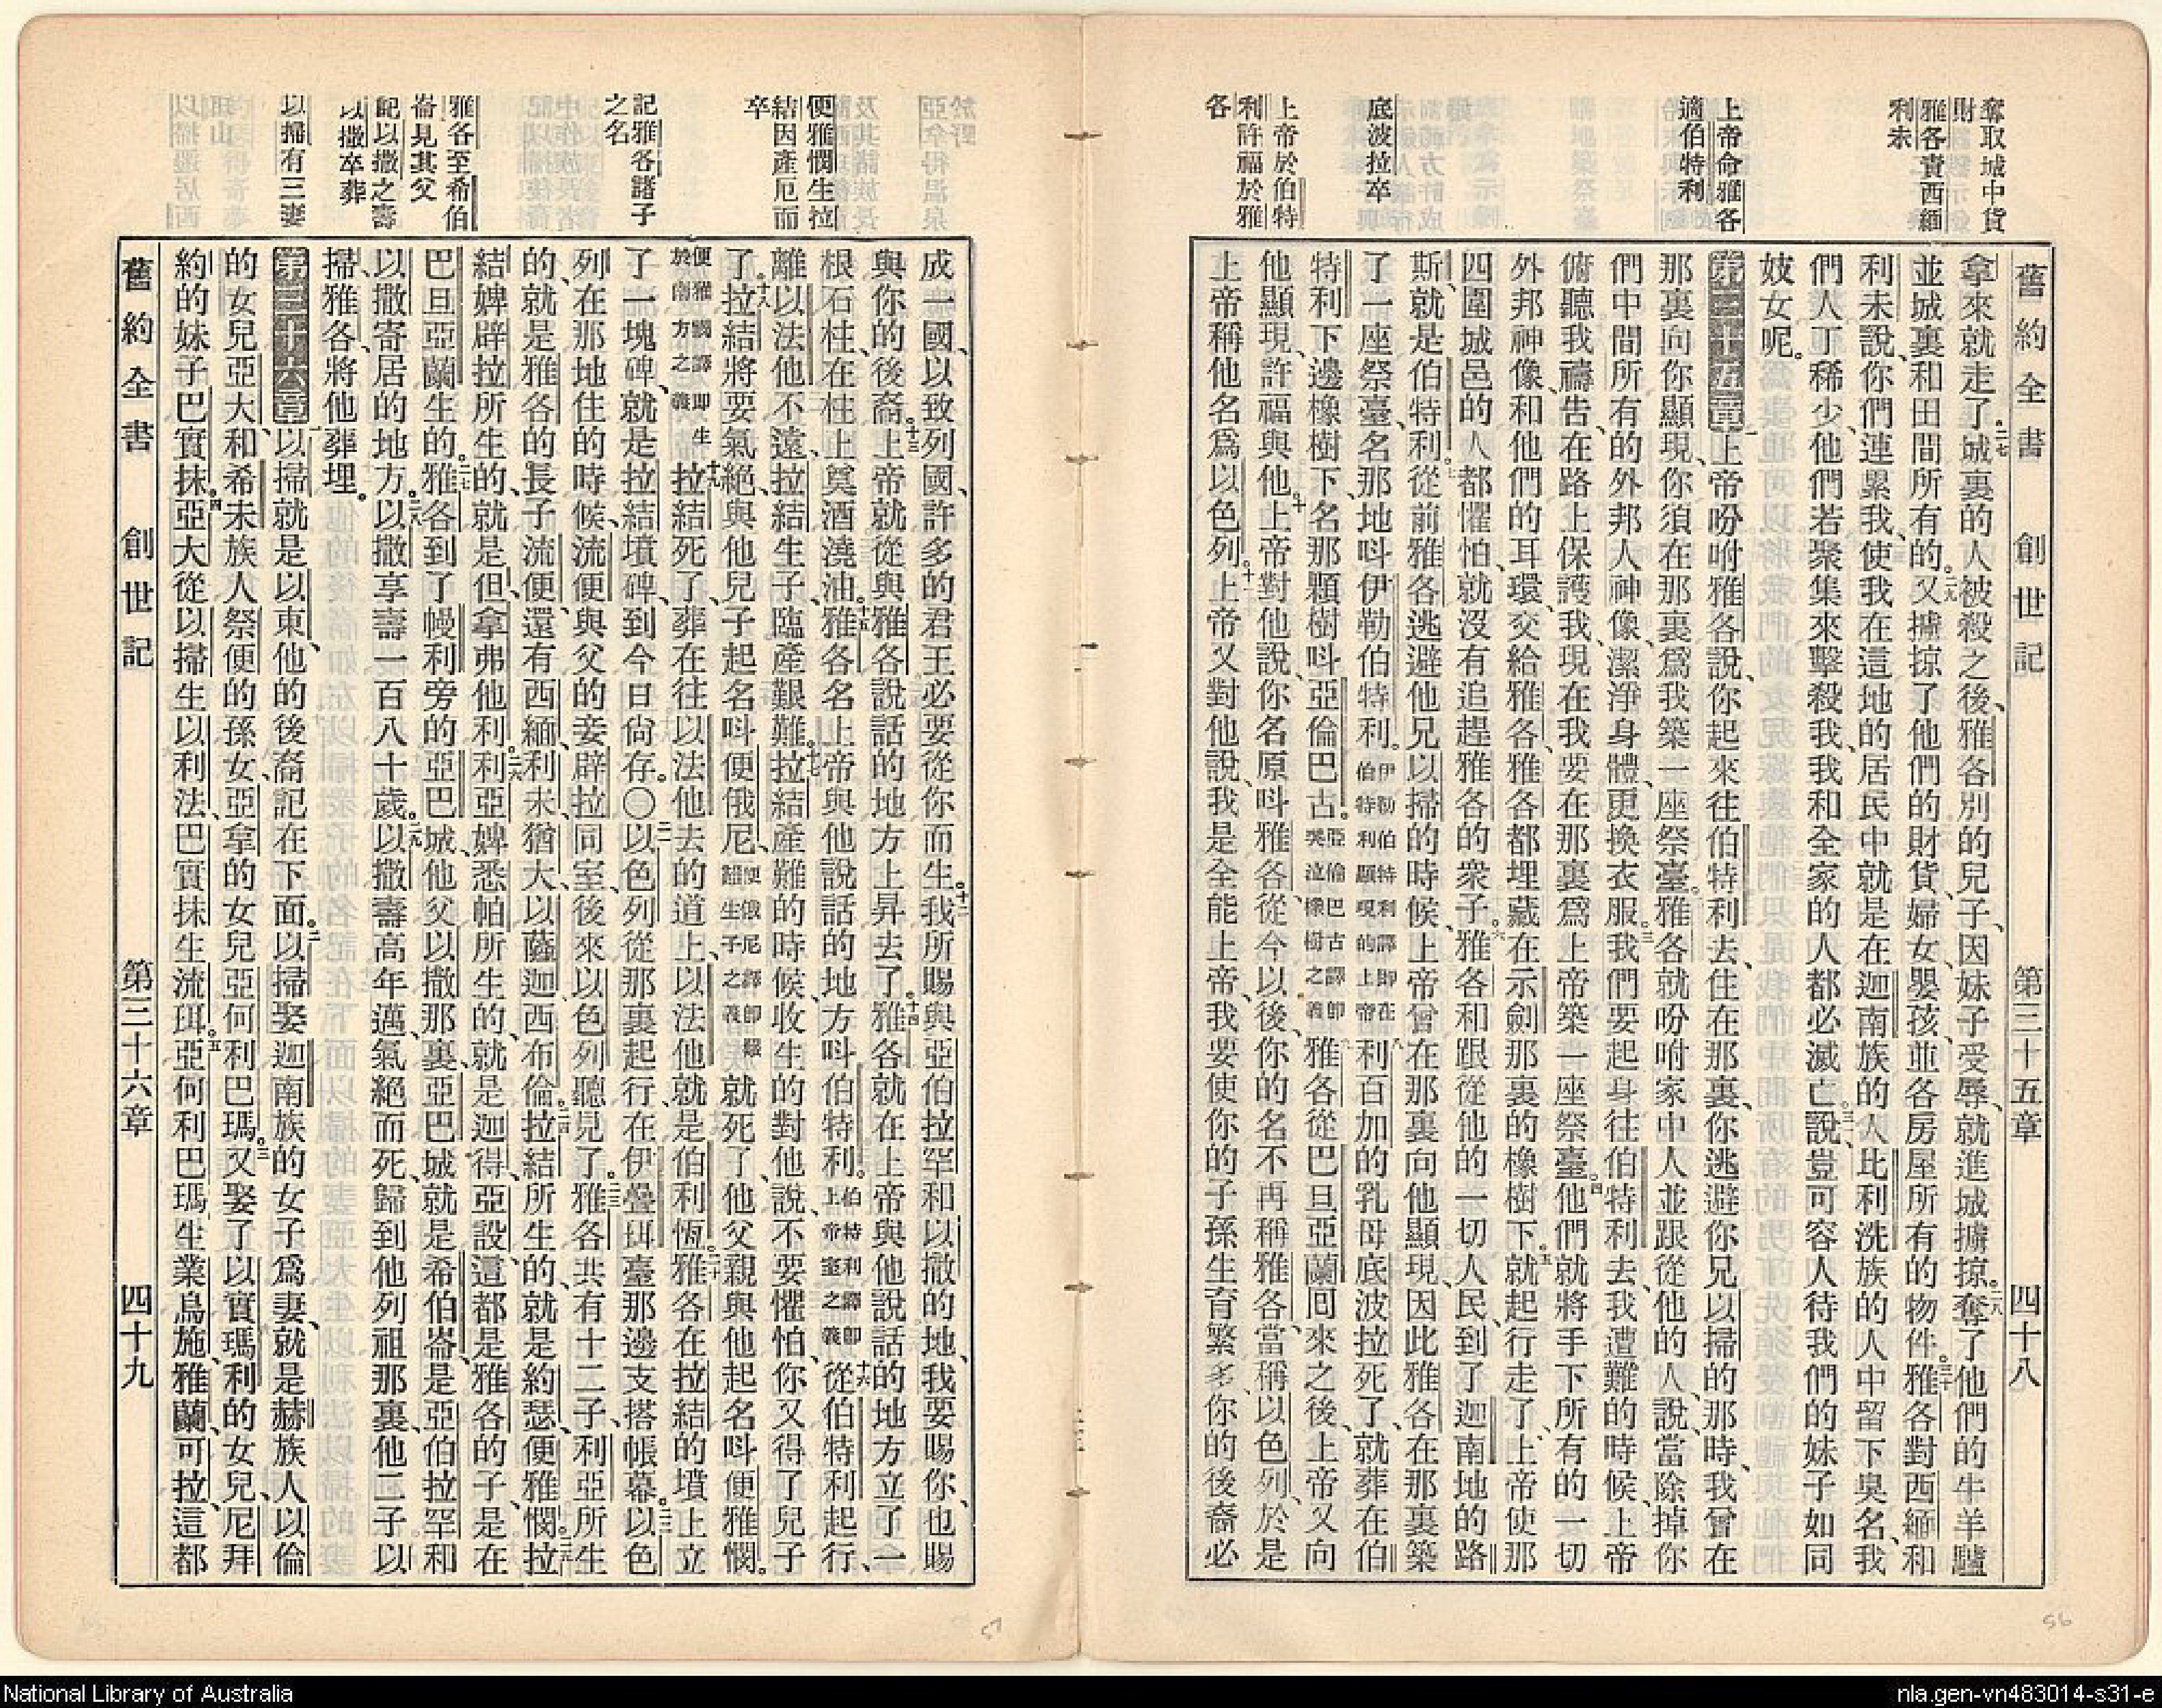 奪取城中貨
財
雅各責西緬
利未
上帝命雅各
適伯特利
底波拉卒
上帝於伯特
利許福於雅
各
舊約全書 創世記 第三十五章 四十八
拿來就走了二七城裏的人被殺之後、雅各別的兒子、因妹子受辱、就進城擄掠。二八奪了他們的牛羊驢
並城裏和田間所有的。二九又擄掠了他們的財貨、婦女、嬰孩、並各房屋所有的物件。三十雅各對西緬和
利未說、你們連累我、使我在這地的居民中就是在迦南族的人比利洗族的人中留下臭名、我
們人丁稀少、他們若聚集來擊殺我、我和全家的人都必滅亡。三一說、豈可容人待我們的妹子如同
妓女呢。
第三十五章 一上帝吩咐雅各說、你起來往伯特利去、住在那裏、你逃避你兄以掃的那時、我曾在
那裏向你顯現、你須在那裏為我築一座祭臺。二雅各就吩咐家中人並跟從他的人說、當除掉你
們中間所有的外邦人神像、潔淨身體、更換衣服。三我們要起身往伯特利去、我遭難的時候、上帝
俯聽我禱告、在路上保護我、現在我要在那裏為上帝築一座祭臺。四他們就將手下所有的一切
外邦神像、和他們的耳環、交給雅各、雅各都埋藏在示劍那裏的橡樹下。五就起行走了、上帝使那
四圍城邑的人都懼怕、就沒有追趕雅各的衆子。六雅各和跟從他的一切人民、到了迦南地的路
斯、就是伯特利。七從前雅各逃避他兄以掃的時候、上帝曾在那裏向他顯現、因此雅各在那裏築
了一座祭臺、名那地呌伊勒伯特利。伊勒伯特利譯即在伯特利顯現的上帝八利百加的乳母底波拉死了、就葬在伯
特利下邊橡樹下、名那顆樹呌亞倫巴古。亞倫巴古譯即哭泣橡樹之義九雅各從巴旦亞蘭囘來之後、上帝又向
他顯現、許福與他。十上帝對他說、你名原呌雅各、從今以後、你的名不再稱雅各、當稱以色列、於是
上帝稱他名爲以色列。十一上帝又對他說、我是全能上帝、我要使你的子孫生育繁多、你的後裔必
便雅憫生拉
結因產厄而
卒
記雅各諸子
之名
雅各至希伯
崙見其父
記以撒之壽
以撒卒葬
以掃有三妻
成一國、以致列國、許多的君王必要從你而生。十二我所賜與亞伯拉罕和以撒的地、我要賜你、也賜
與你的後裔。十三上帝就從與雅各說話的地方上昇去了。十四雅各就在上帝與他說話的地方立了一
根石柱、在柱上奠酒澆油。十五雅各名上帝與他說話的地方呌伯特利。伯特利譯即上帝室之義十六從伯特利起行、
離以法他不遠、拉結生子、臨產艱難。十七拉結產難的時候、收生的對他說、不要懼怕、你又得了兒子
了。十八拉結將要氣絕、與他兒子起名呌便俄尼、便俄尼譯即艱難生子之義就死了、他父親與他起名呌便雅憫。
便雅憫譯即生於南方之義十九拉結死了、葬在往以法他去的道上、以法他就是伯利恆。二十雅各在拉結的墳上立
了一塊碑、就是拉結墳碑、到今日尙存。〇二一以色列從那裏起行、在伊疊珥臺那邊支搭帳幕。二二以色
列在那地住的時候、流便與父的妾辟拉同室、後來以色列聽見了。二三雅各共有十二子、利亞所生
的、就是雅各的長子流便、還有西緬、利未、猶大、以薩迦、西布倫。二四拉結所生的、就是約瑟、便雅憫。二五拉
結婢辟拉所生的、就是但、拿弗他利。二六利亞婢悉帕所生的、就是迦得、亞設、這都是雅各的子、是在
巴旦亞蘭生的。二七雅各到了幔利旁的亞巴城、他父以撒那裏、亞巴城就是希伯崙、是亞伯拉罕和
以撒寄居的地方。二八以撒享壽一百八十歲。二九以撒壽高年邁、氣絕而死、歸到他列祖那裏、他二子以
掃、雅各、將他葬埋。
第三十六章 一以掃就是以東、他的後裔記在下面。二以掃娶迦南族的女子爲妻、就是赫族人以倫
的女兒亞大、和希未族人祭便的孫女、亞拿的女兒亞何利巴瑪。三又娶了以實瑪利的女兒、尼拜
約的妹子巴實抹。四亞大從以掃生以利法、巴實抹生流珥。五亞何利巴瑪生業烏施、雅蘭、可拉、這都
舊約全書 創世記 第三十六章 四十九
57
56
National Library of Australia
nla.gen-vn483014-s31-e